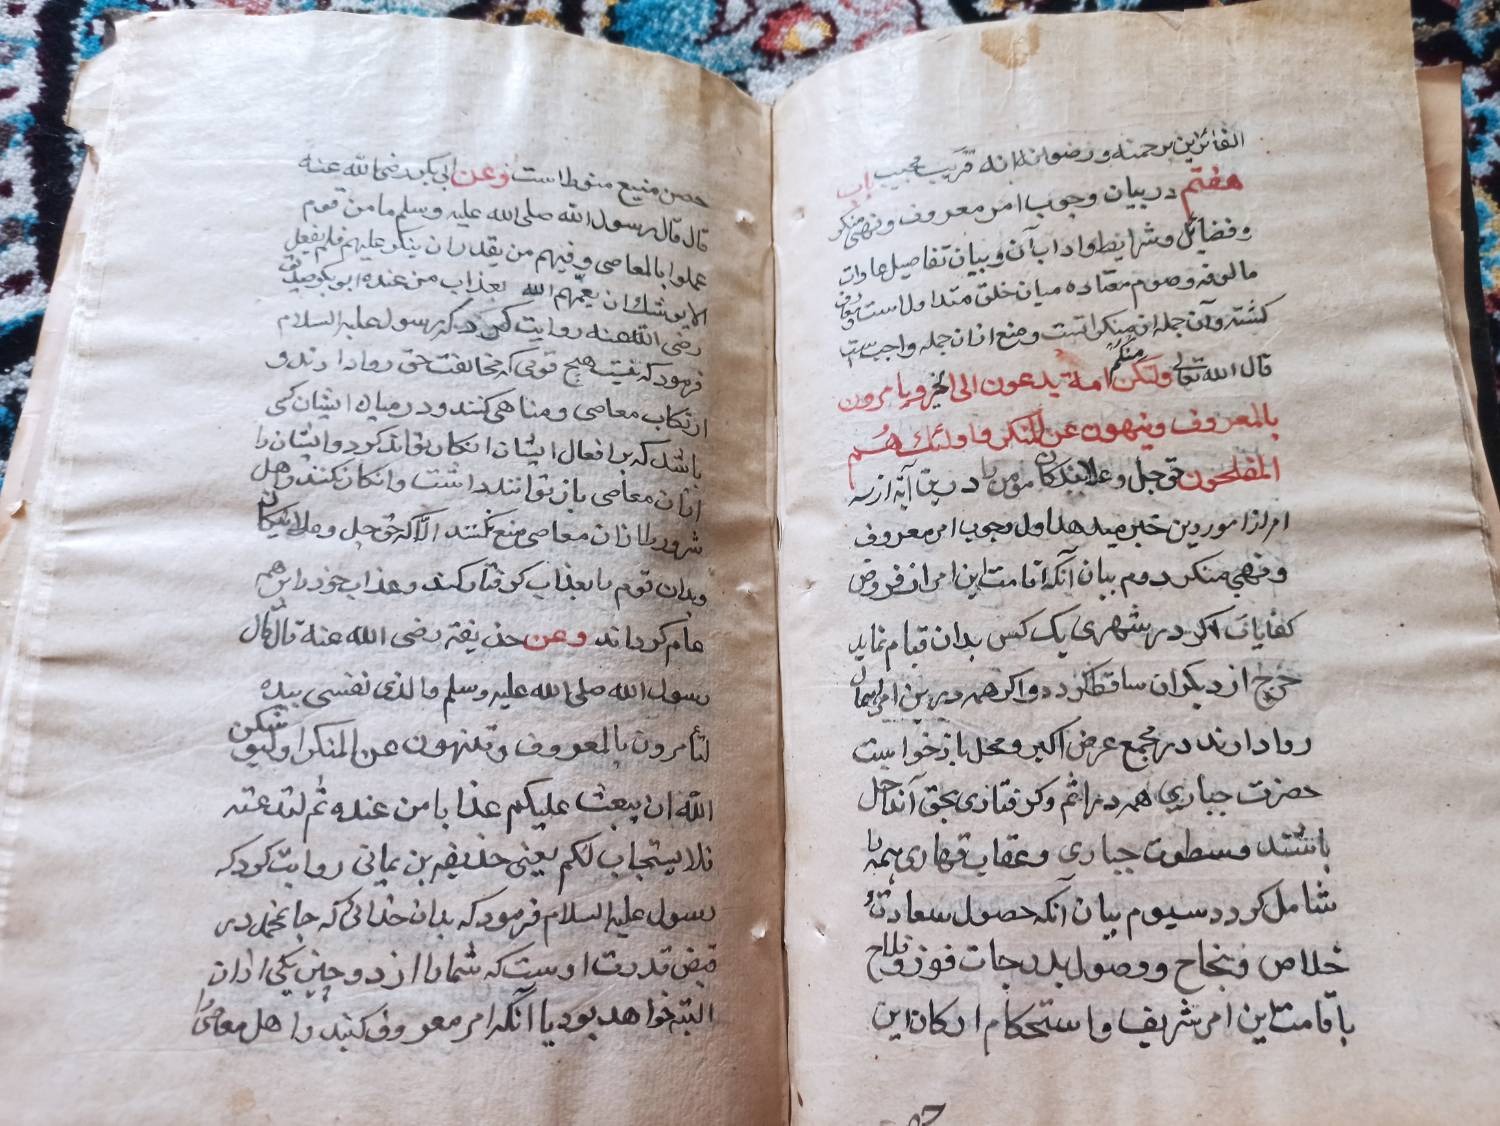 الفائزین برحمته ورضوانه انه قریب مجیب باب
هفتم در بیان وجوب امر معروف ونهی منکر
وفضائل وشرایط واداب آن وبیان تفاصیل عادات
مالوفه ورسوم معتاده میان خلق متداول است
کشته وآن جمله از منکراتست ومنع ازان جمله واجبست
قال الله تعالی ولتکن منکم امة یدعون الی الخیر ویامرون
بالمعروف وینهون عن المنکر واولئك هم
المفلحون حق جل وعلا بندکان مؤمن را درین آیة از سه
امر از امور دین خبر میدهد اول وجوب امر معروف
ونهی منکر دوم بیان آنکه اقامت این امر از فروض
کفایات اکر در شهری یک کس بدان قیام نماید
حرج از دیکران ساقط کردد واکر همه درین امر اهمال
روا دارند در مجمع عرض اکبر ومحل بازخواست
حضرت جباری همه در اثم وکرفتاری بحق آن داخل
باشند وسطوت جباری وعقاب قهاری همه را
شامل کردد سیوم بیان آنکه حصول سعادت
خلاص ونجاح ووصول بدرجات فوز وفلاح
باقامت این امر شریف واستحکام ارکان این
حصن منیع منوط است وعن ابی بکر رضی الله عنه
قال قال رسول الله صلی الله علیه وسلم ما من قوم
عملوا بالمعاصی وفیهم من یقدر ان ینکر علیهم فلم یفعل
الا یوشك ان یعمهم الله بعذاب من عنده ابوبکر صدیق
رضی الله عنه روایت کرد که رسول علیه السلام
فرمود که نیست هیچ قومی که مخالفت حق روا دارند و
ارتکاب معاصی ومناهی کنند ودر میان ایشان کسی
باشد که بر افعال ایشان انکار تواند کرد وایشان را
ازان معاصی باز توانند داشت وانکار نکنند واهل
شرور را ازان معاصی منع نکنند الا که حق جل وعلا نیکان
وبدان قوم را بعذاب کرفتار کند وعذاب خود را بر همه
عام کرداند وعن حذیفة رضی الله عنه قال قال
رسول الله صلی الله علیه وسلم والذی نفسی بیده
لتأمرون بالمعروف وتنهون عن المنکر او لیوشکن
الله ان یبعث علیکم عذابا من عنده ثم لتدعنه
فلا یستجاب لکم یعنی حذیفه بن یمانی روایت کرد که
رسول علیه السلام فرمود که بدان خدائی که جا محمد در
قبض قدرت اوست که شما را از دو چیز یکی ازان
البته خواهد بود یا آنکه امر معروف کنید واهل معاصی را